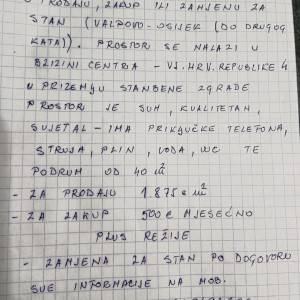 PRODAJU, ZAKUP ILI ZAMJENU ZA
STAN (VALPOVO-OSIJEK (DO DRUGOG
KATA)). PROSTOR SE NALAZI U
BLIZINI CENTRA - VIJ. HRV. REPUBLIKE 4
U PRIZEMJU STANBENE ZGRADE
PROSTOR JE SUH, KVALITETAN,
SVJETAL - IMA PRIKLJUČKE TELEFONA,
STRUJA, PLIN, VODA, WC TE
PODRUM OD 40 m²
- ZA PRODAJU 1.875 € m²
- ZA ZAKUP 500 € MJESEČNO
PLUS REŽIJE
- ZAMJENA ZA STAN PO DOGOVORU
SVE INFORMACIJE NA MOB.